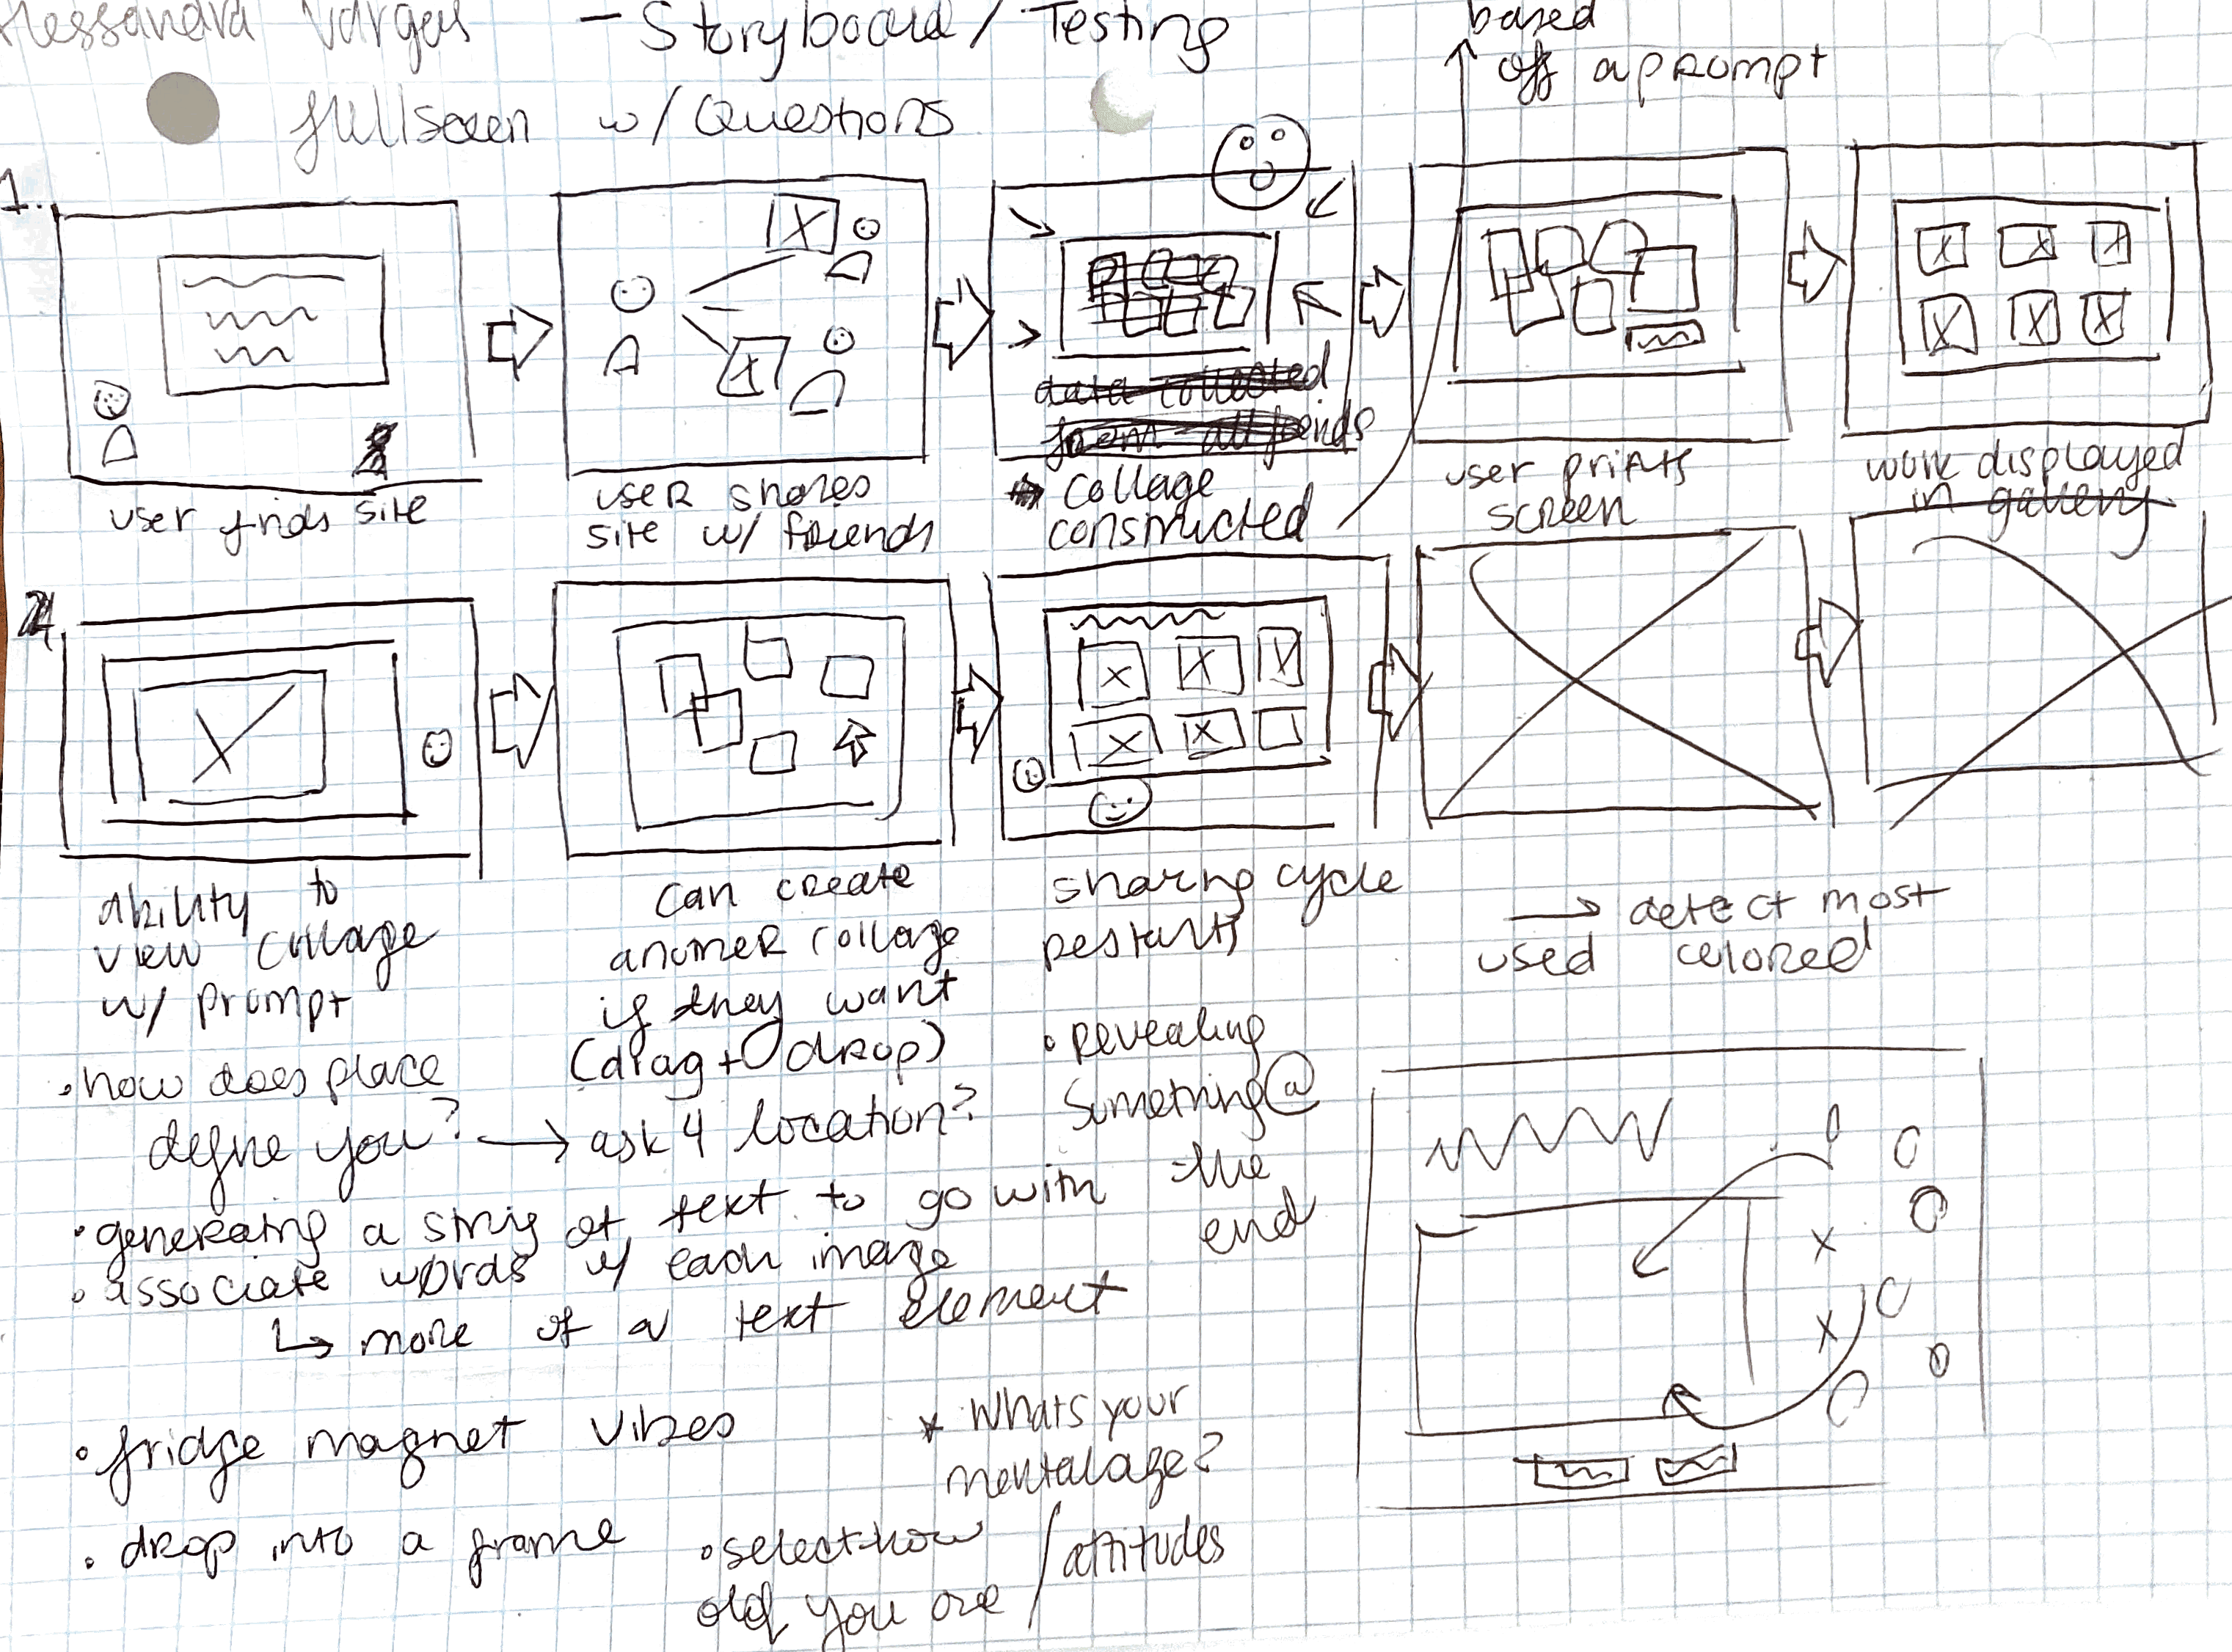 Alessandra Vargas - Storyboard / Testing
fullscreen w/ Questions
based
off a prompt
1.
user finds site
user shares
site w/ friends
data collected
from all friends
collage
constructed
user prints
screen
work displayed
in gallery
ability to
view collage
w/ prompt
can create
another collage
if they want
(drag + drop)
sharing cycle
restarts
→ detect most
used colored
• how does place
define you? → ask 4 location?
• revealing
something @
the
end
• generating a string of text to go with
• associate words w/ each image
↳ more of a text element
• fridge magnet vibes
• drop into a frame
* Whats your
mental age?
• select how
old you are / attitudes